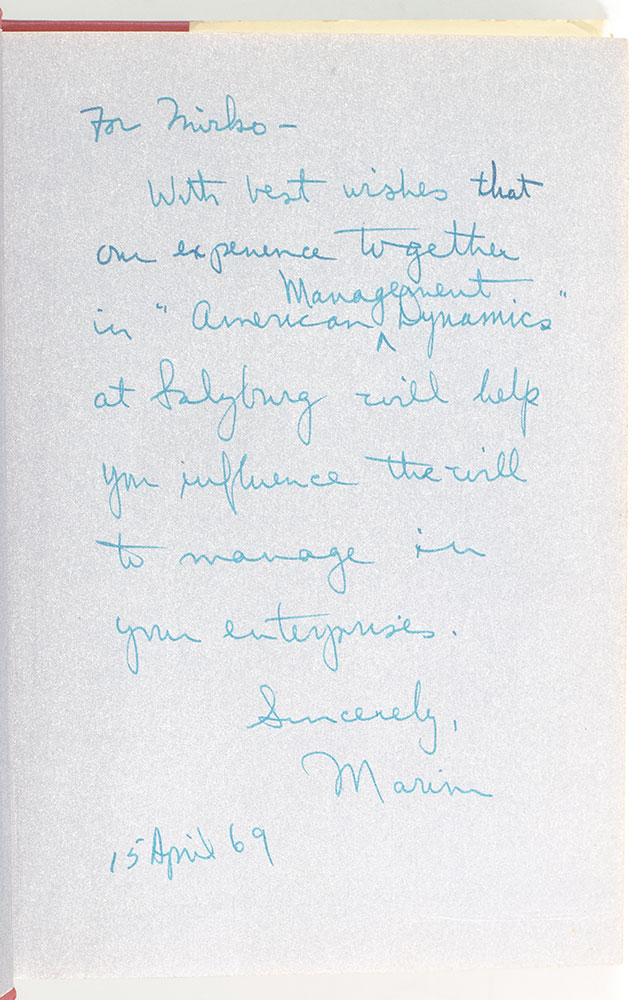 For Mirko –
With best wishes that
our experience together
in "American Management Dynamics"
at Salzburg will help
you influence the will
to manage in
your enterprises.
Sincerely,
Marvin
15 April 69